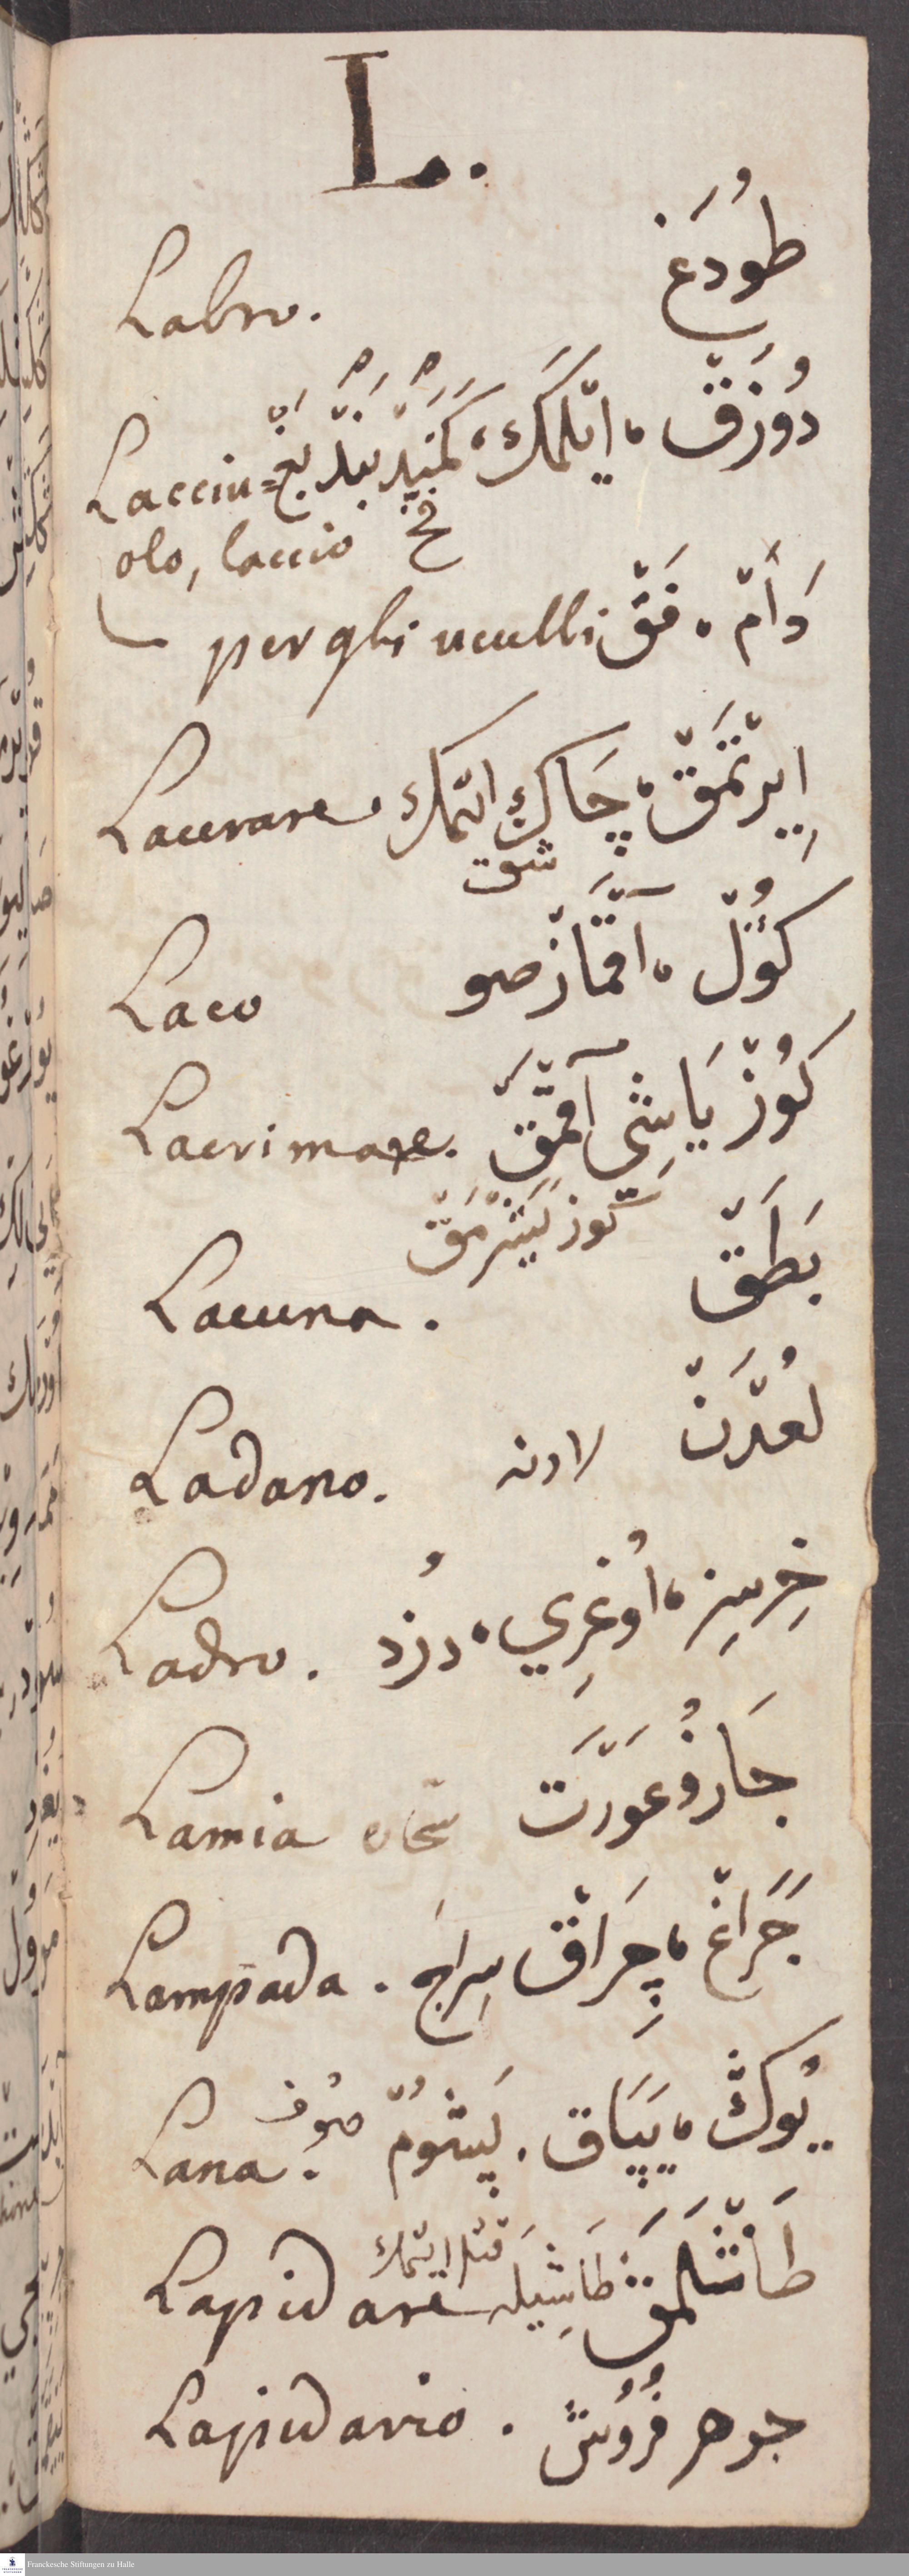 L.
Labro. طُودَغ
Lacciu= دُوزَقْ، ايلمَكَ، كَمَنِيدْ بَنِدْ
olo, laccio فخ
per gli uculli دَأمْ، فَقْ
Lacerare. اِيرْتمَقْ، چَاكِ ايتمك
شق
Laco كُوْلْ، آقمَازْ صو
Lacrimare. كُوزْ يَاشِي آقمَقْ
كوز يَشَرْمَقْ
Lacuna. بَطَقْ
Ladano. لعُدَنْ لادنه
Ladro. خِرسِز، اوُغرِي، دُزد
Lamia جَازُو عَوَرَت سحاره
Lampada. جَراغْ، چِرَاقْ سِراجَ
Lana. يُوكْ، يَپَاق. پَشُومْ صوُف
Lapidare طَاشْلَمَقْ طَاشِيله قتل ايتمك
Lapidario. جوهر فُرُوش
Franckesche Stiftungen zu Halle